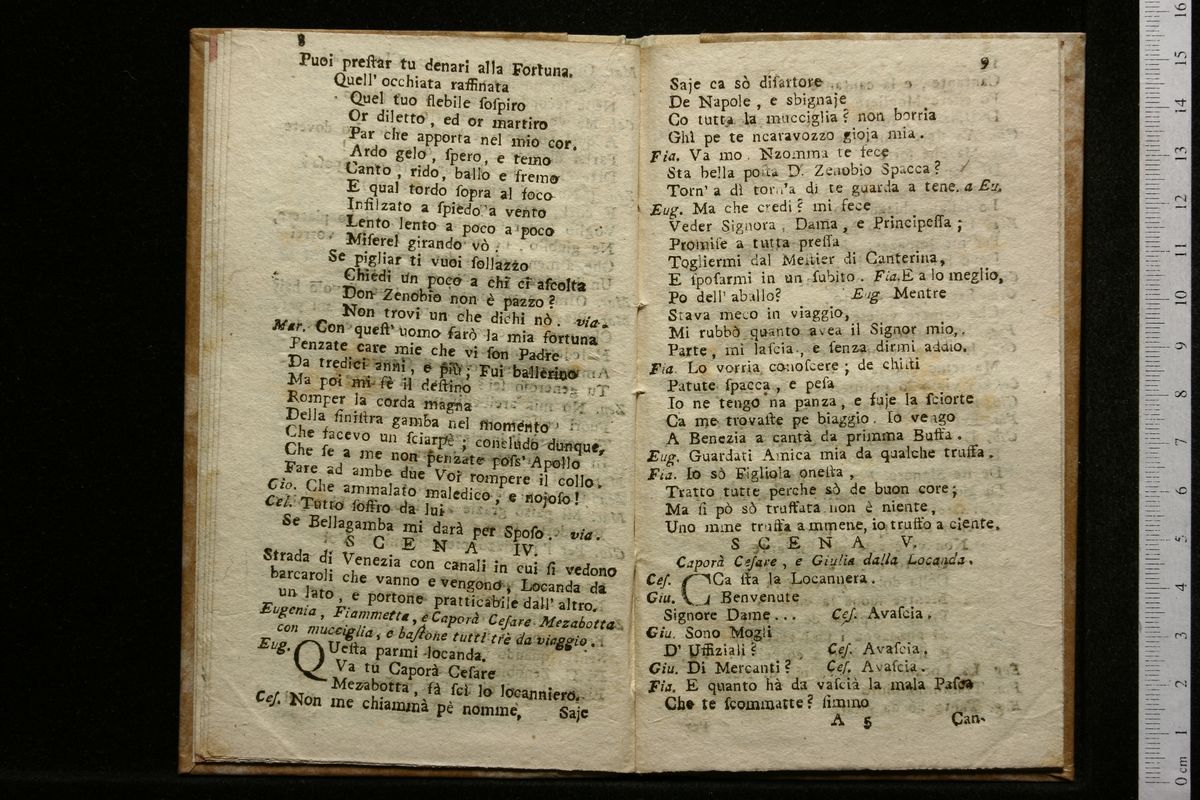 8
Puoi preſtar tu denari alla Fortuna.
Quell' occhiata raffinata
Quel tuo flebile ſoſpiro
Or diletto, ed or martiro
Par che apporta nel mio cor.
Ardo gelo, ſpero, e temo
Canto, rido, ballo e fremo
E qual tordo ſopra al foco
Infilzato a ſpiedo a vento
Lento lento a poco a poco
Miſerel girando vò.
Se pigliar ti vuoi ſollazzo
Chiedi un poco a chi ci aſcolta
Don Zenobio non è pazzo?
Non trovi un che dichi nò. via.
Mar. Con queſt' uomo farò la mia fortuna
Penzate care mie che vi ſon Padre
Da tredici anni, e più; Fui ballerino
Ma poi mi fè il deſtino
Romper la corda magna
Della ſiniſtra gamba nel momento
Che facevo un ſciarpè; concludo dunque,
Che ſe a me non penzate poſſ' Apollo
Fare ad ambe due Voi rompere il collo.
Gio. Che ammalato maledico, e nojoſo!
Cel. Tutto ſoffro da lui
Se Bellagamba mi darà per Spoſo. via.
SCENA IV.
Strada di Venezia con canali in cui ſi vedono
barcaroli che vanno e vengono, Locanda da
un lato, e portone pratticabile dall' altro.
Eugenia, Fiammetta, e Caporà Ceſare Mezabotta
con mucciglia, e baſtone tutti trè da viaggio.
Eug. QUeſta parmi locanda.
Va tu Caporà Ceſare
Mezabotta, fà ſcì lo locanniero.
Ceſ. Non me chiammà pè nomme,
Saje
9
Saje ca sò diſartore
De Napole, e sbignaje
Co tutta la mucciglia? non borria
Ghì pe te ncaravozzo gioja mia.
Fia. Va mo. Nzomma te fece
Sta bella poſta D. Zenobio Spacca?
Torn' a dì torn'a di te guarda a tene. a Eu.
Eug. Ma che credi? mi fece
Veder Signora, Dama, e Principeſſa;
Promiſe a tutta preſſa
Togliermi dal Meſtier di Canterina,
E ſpoſarmi in un ſubito. Fia. E a lo meglio,
Po dell' aballo? Eug. Mentre
Stava meco in viaggio,
Mi rubbò quanto avea il Signor mio,
Parte, mi laſcia, e ſenza dirmi addio.
Fia. Lo vorria conoſcere; de chiſti
Patute ſpacca, e peſa
Io ne tengo na panza, e fuje la ſciorte
Ca me trovaſte pe biaggio. Io vengo
A Benezia a cantà da primma Buffa.
Eug. Guardati Amica mia da qualche truffa.
Fia. Io sò Figliola oneſta,
Tratto tutte perche sò de buon core;
Ma ſi pò sò truffata non è niente,
Uno mme truffa ammene, io truffo a ciente.
SCENA V.
Caporà Ceſare, e Giulia dalla Locanda.
Ceſ. CCa ſta la Locannera.
Giu. Benvenute
Signore Dame... Ceſ. Avaſcia.
Giu. Sono Mogli
D' Uffiziali? Ceſ. Avaſcia.
Giu. Di Mercanti? Ceſ. Avaſcia.
Fia. E quanto hà da vaſcià la mala Paſca
Che te ſcommatte? ſimmo
A 5 Can-
16
15
14
13
12
11
10
9
8
7
6
5
4
3
2
1
0 cm